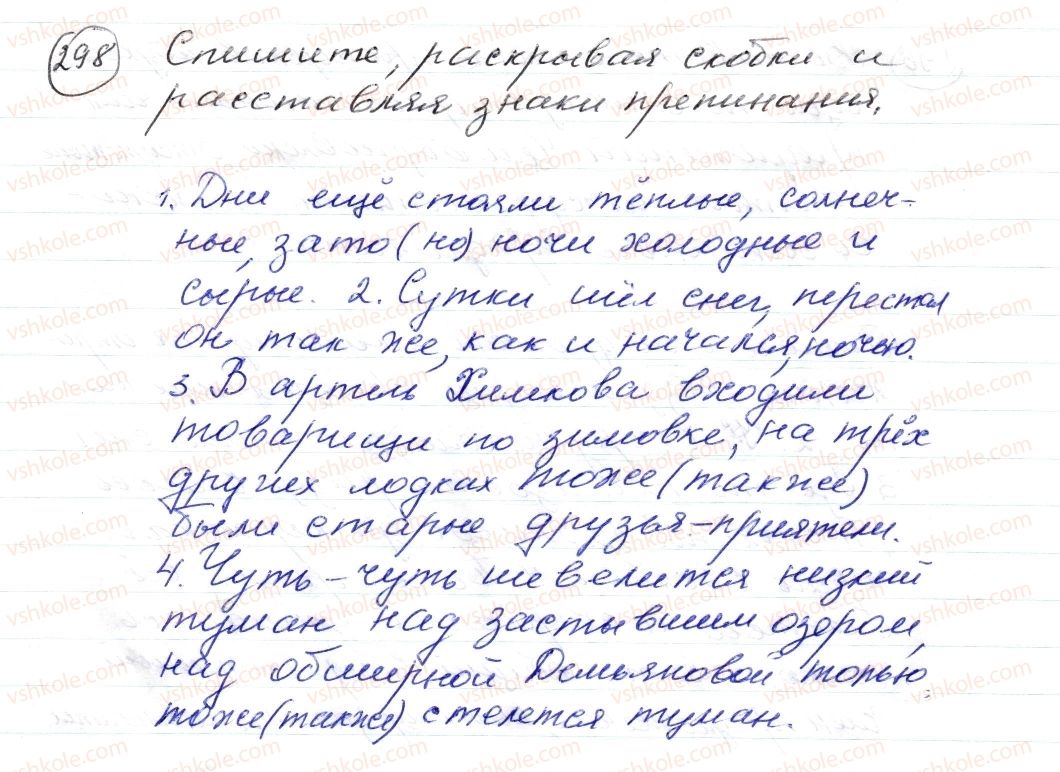 298 Спишите, раскрывая скобки и
расставляя знаки препинания.
1. Дни ещё стояли тёплые, солнеч-
ные, зато (но) ночи холодные и
сырые. 2. Сутки шёл снег, перестал
он так же, как и начался, ночью.
3. В артель Химкова входили
товарищи по зимовке, на трёх
других лодках тоже (также)
были старые друзья-приятели.
4. Чуть-чуть шевелится низкий
туман над застывшим озером,
над обширной Демьяновой топью
тоже (также) стелется туман.